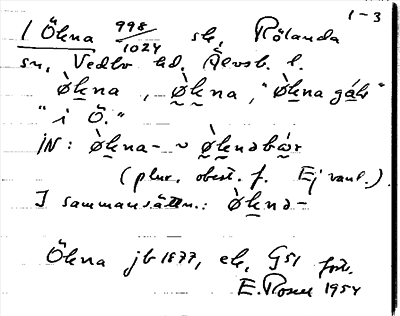 1-3
1 Ökna 998/1024 sk, Rölanda
sn, Vedbo hd. Älvsb. l.
ø̀kna, ø̀kna, "ø̀kna gå̄ḷ"
"i Ö."
IN: ø̀kna- ~ ø̀knəbǫr
(plur. obest. f. Ej vanl.)
I sammansättn.: ø̀knə-
Ökna jb 1877, ek, G51 fort.
E. Rosell 1954